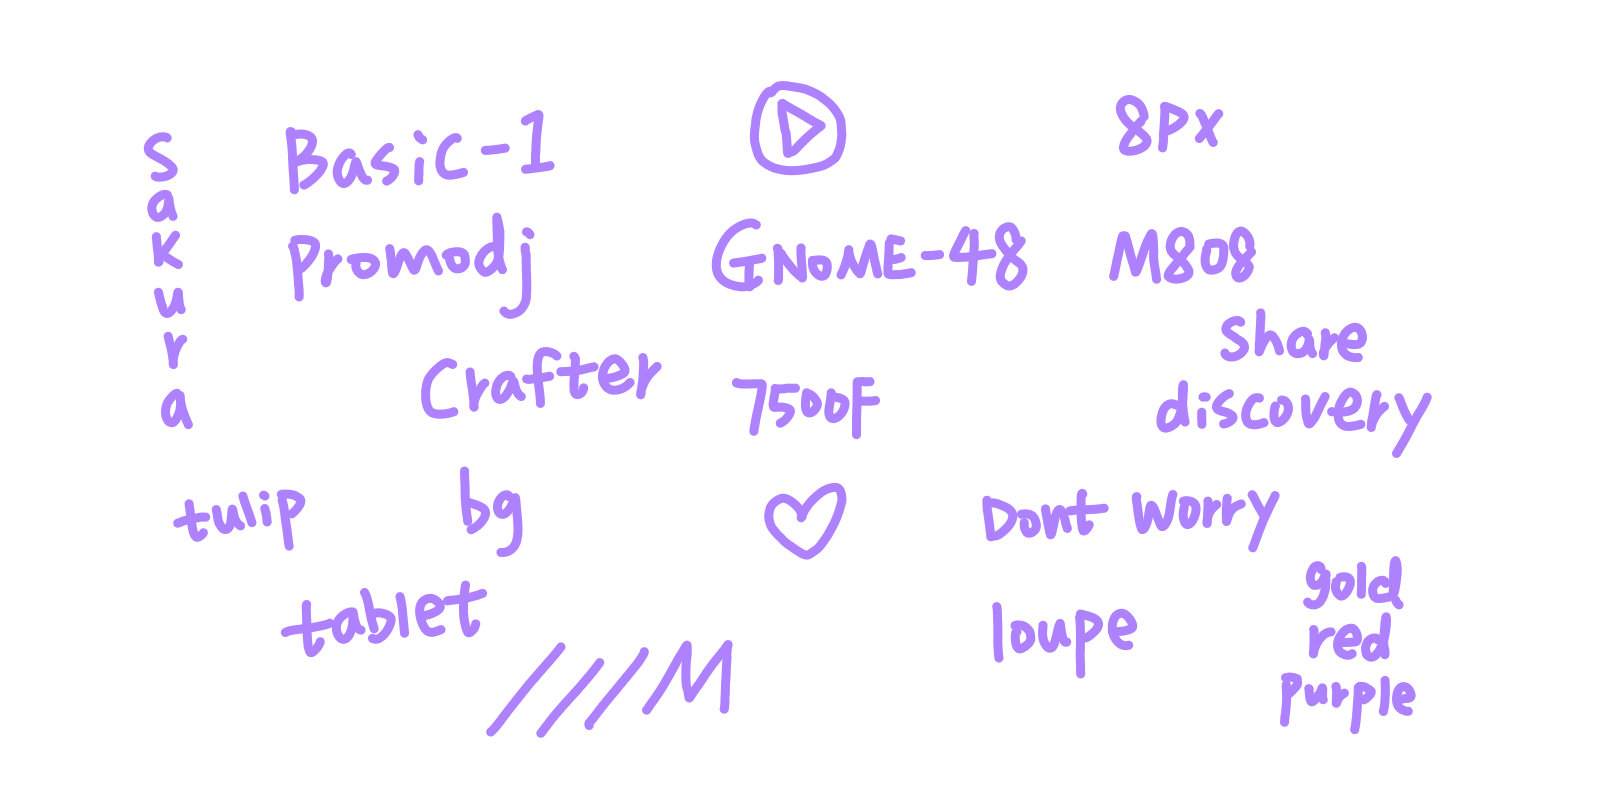 Sakura
Basic-1
8px
Promodj
GNOME-48
M808
Crafter
7500F
Share
discovery
tulip
bg
Dont worry
tablet
loupe
gold
red
purple
///M